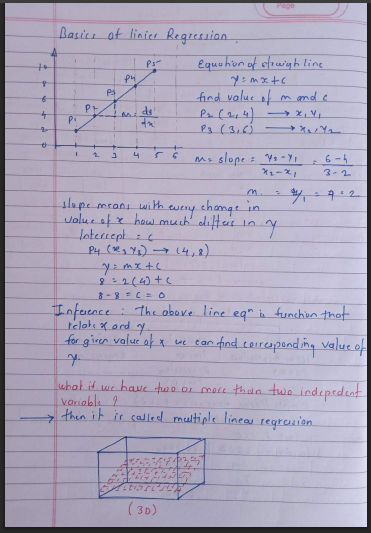 Page
Basics of linier Regression.
10
8
6
4
2
0
1 2 3 4 5 6
P1
P2
P3
P4
P5
m = dy/dx
Equation of straigh line
y = mx + c
find value of m and c
P2 (2,4) → x1, y1
P3 (3,6) → x2, y2
m = slope = y2-y1 / x2-x1 = 6-4 / 3-2
m. = 2
slope means with every change in
value of x how much differs in y
Intercept = c
P4 (x3, y3) → (4, 8)
y = mx + c
8 = 2(4) + c
8 - 8 = c = 0
Inference : The above line eqn is function that
relate x and y.
for given value of x we can find corresponding value of
y.
what if we have two or more than two indepedent
variable ?
→ then it is called multiple linear regression
(3D)